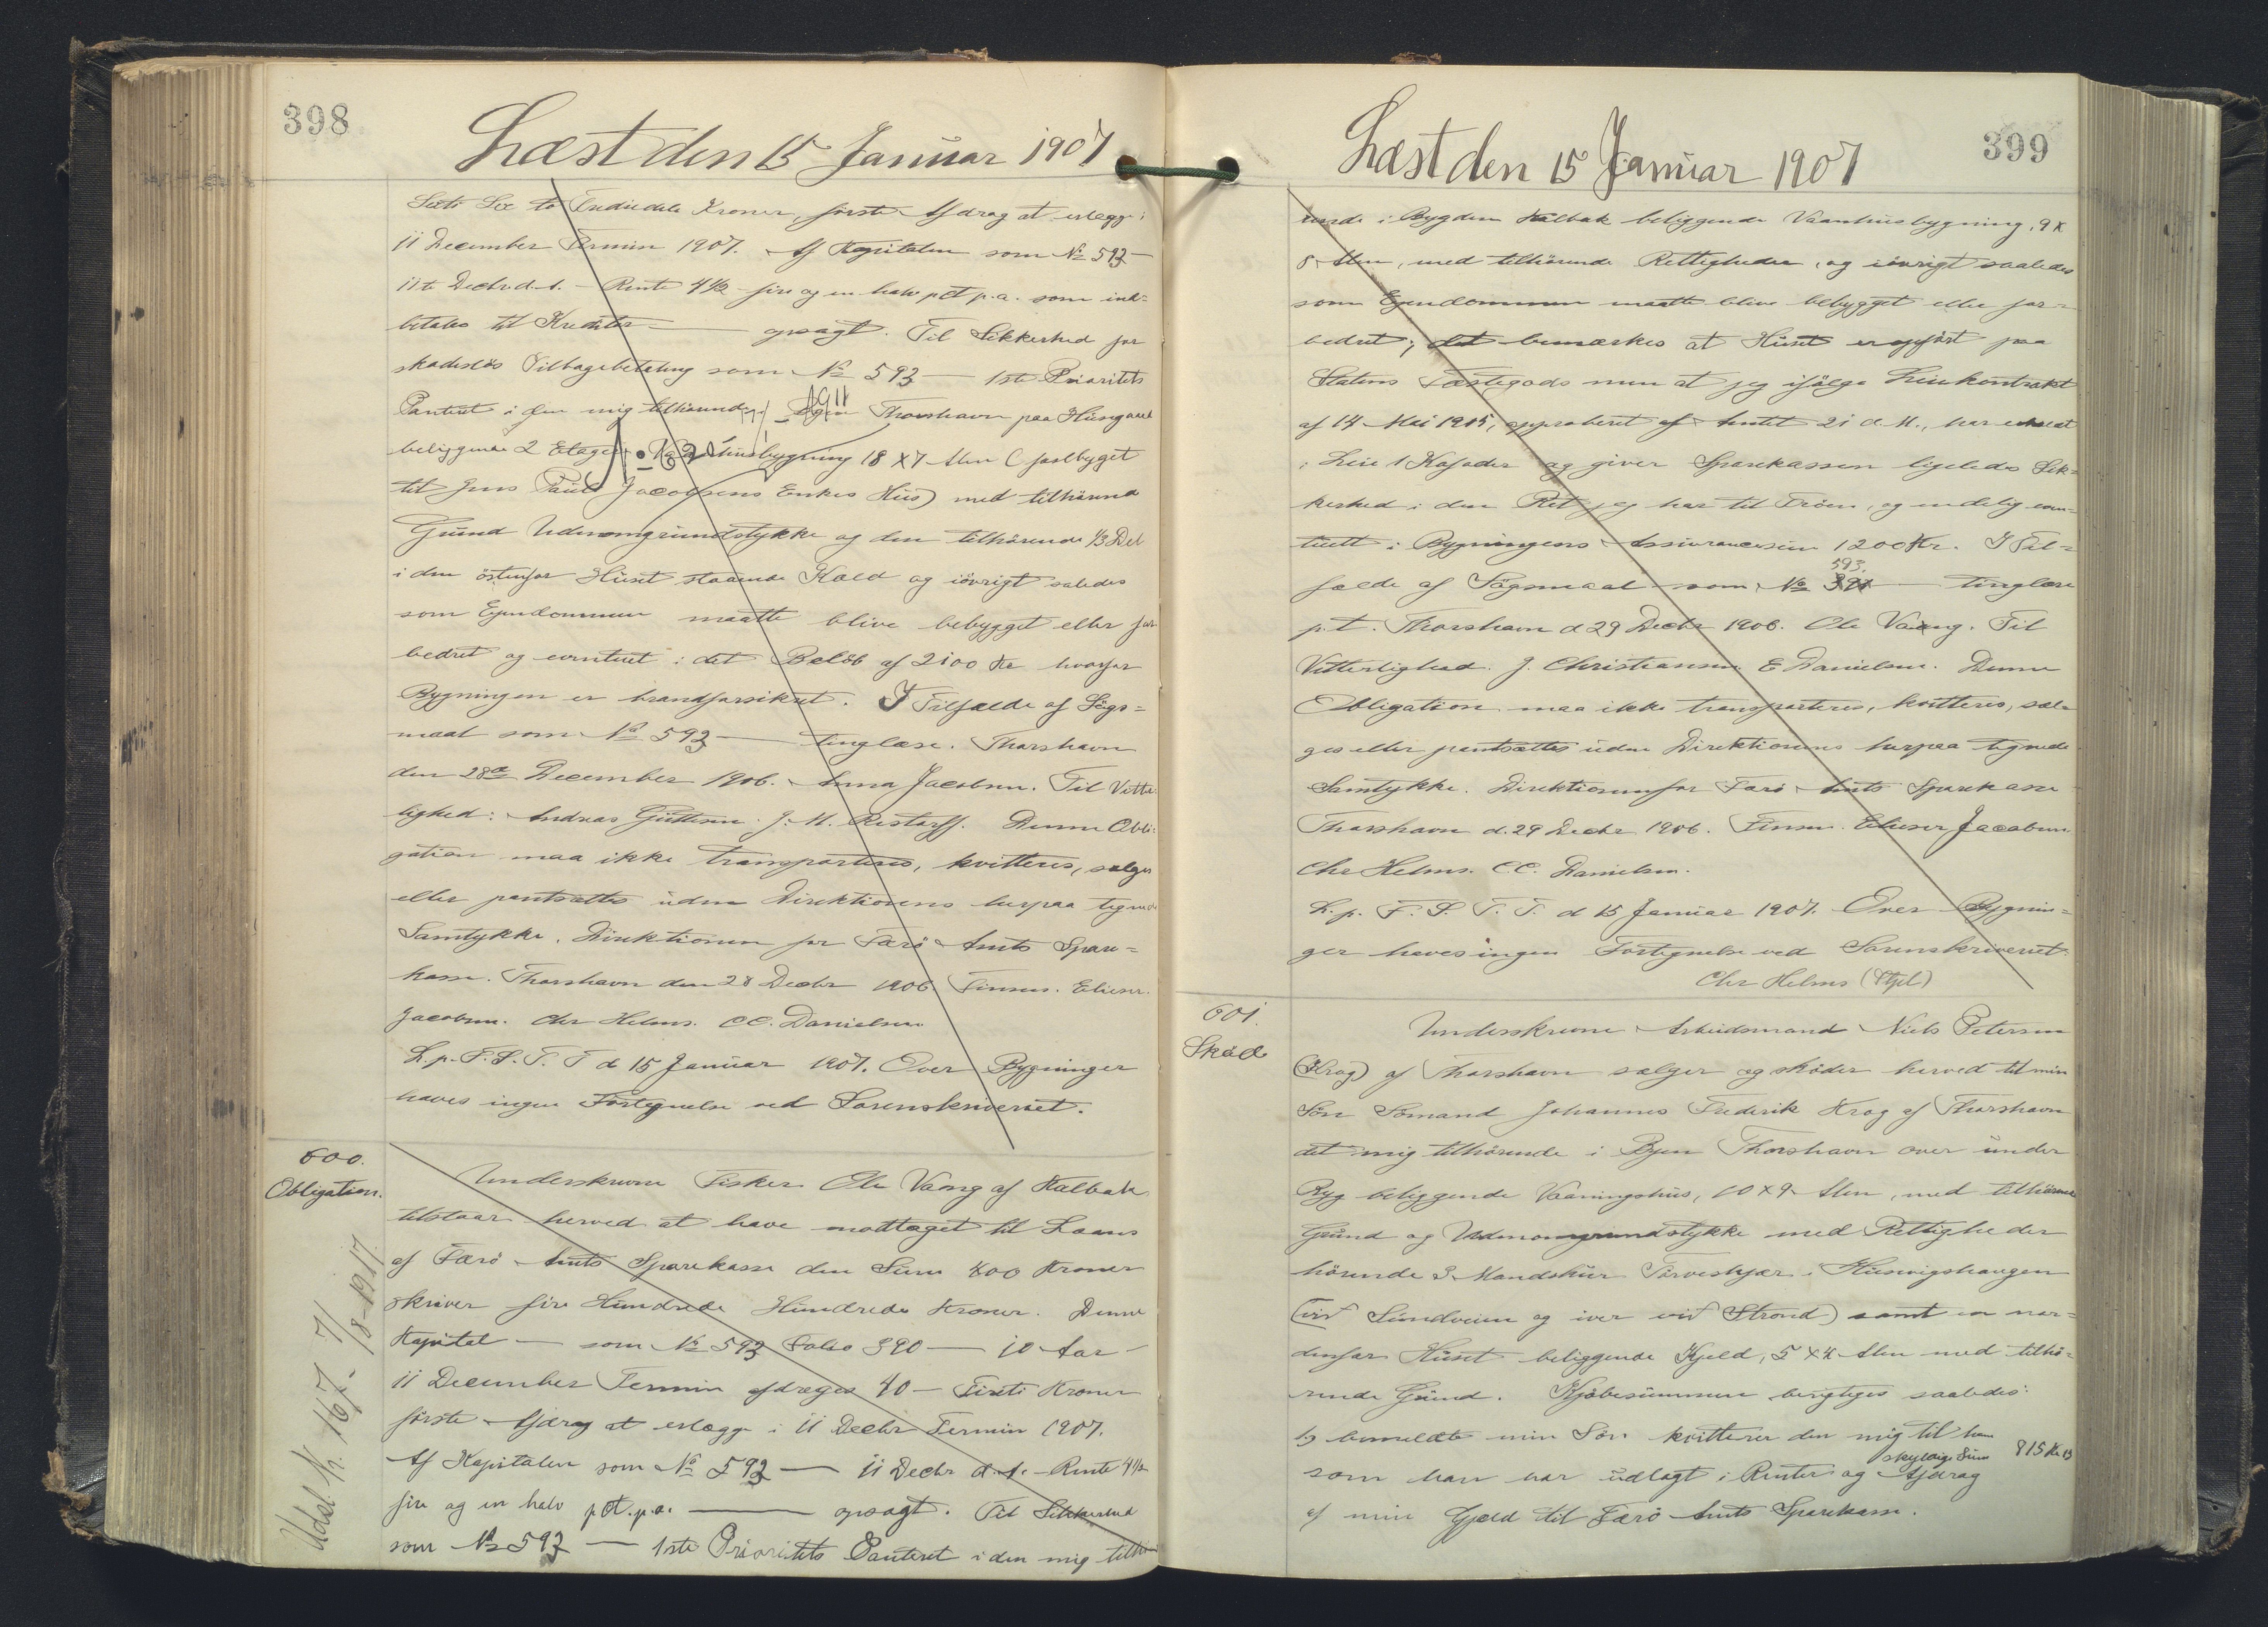 398
Læst den 15 Januar 1907
Seksti Sex to Trediedele Kroner, første Afdrag at erlægge i
11 December Termin 1907. Af Kapitalen som № 593 —
11te Decbr d. A. — Rente 4½ fire og en halv pCt p.a. som ind-
betales til Kreditor — opsagt. Til Sikkerhed for
skadesløs Tilbagebetaling som № 593 — 1ste Prioritets
Panteret i den mig tilhørende i Byen Thorshavn paa Husagaard
beliggende 2 Etages Vaaningshusbygning 18 x 7 Alen (fastbygget
til Jens Pauli Jacobsens Enkes Hus) med tilhørende
Grund Udenomgrundstykke og den tilhørende 1/3 Del
i den østenfor Huset staaende Kæld og iøvrigt saaledes
som Ejendommen maatte blive bebygget eller for
bedret og eventuet i det Beløb af 2100 Kr hvorfor
Bygningen er brandforsikret. I Tilfælde af Søgs-
maal som № 593 — tinglæse. Thorshavn
den 28de December 1906. Anna Jacobsen. Til Vitter
lighed: Andreas Guttesen. J. M. Restorff. Denne Obli-
gation maa ikke transporteres, kvitteres, sælges
eller pantsættes uden Direktionens herpaa tegnede
Samtykke. Direktionen for Færø Amts Spare-
kasse. Thorshavn den 28 Decbr 1906 Finsen. Elieser
Jacobsen. Chr Helms. CC. Danielsen
L. p. F. S. T. T d 15 Januar 1907. Over Bygninger
haves ingen Fortegnelse ved Sorenskriveriet.
600.
Obligation.
Underskrevne Fisker Ole Vang af Kalbak
tilstaar herved at have modtaget til Laans
af Færø Amts Sparekasse den Sum 400 Kroner
skriver fire Hundrede Hundrede Kroner. Denne
Kapital — som № 593 Folio 390 — 10 Aar —
11 December Termin afdrages 40 — Firti Kroner
første Afdrag at erlægge i 11 Decbr Termin 1907.
Af Kapitalen som № 593 — 11 Decbr d. A. — Rente 4½
fire og en halv pCt. p.a. — opsagt. Til Sikkerhed
som № 593 — 1ste Prioritets Panteret i den mig tilhø
399
Læst den 15 Januar 1907
rende i Bygden Kalbak beliggende Vaanhusbygning, 9 x
8 Alen, med tilhørende Rettigheder, og iøvrigt saaledes
som Ejendommen maatte blive bebygget eller for-
bedret; det bemærkes at Huset er opført paa
Statens Fæstegods men at jeg ifølge Leiekontrakt
af 14 Mai 1905, approberet af Amtet 21 d. M., har erholdt
i Leie 1 Kafader og giver Sparekassen ligeledes Sik-
kerhed i den Ret jeg har til Trøen, og endelig even-
tuelt i Bygningens Assurancesum 1200 Kr. I Til-
593.
fælde af Søgsmaal som № — tinglæse
p.t. Thorshavn d 29 Decbr 1906. Ole Vaang. Til
Vitterlighed. J. Christiansen. E Danielsen. Denne
Obligation maa ikke transporteres, kvitteres, sæl-
ges eller pantsættes uden Direktionens herpaa tegnede
Samtykke. Direktionen for Færø Amts Sparekasse
Thorshavn d. 29 Decbr 1906. Finsen. Elieser Jacobsen
Chr Helms. CC. Danielsen.
L. p. F. S. T. T. d 15 Januar 1907. Over Bygnin-
ger haves ingen Fortegnelse ved Sorenskriveriet.
Chr Helms
601.
Skøde
Underskrevne Arbeidsmand Niels Petersen
(Krog) af Thorshavn sælger og skøder herved til min
Søn Sømand Johannes Frederik Krog af Thorshavn
det mig tilhørende i Byen Thorshavn over under
Ryg beliggende Vaaningshus, 10 x 9 Alen, med tilhørende
Grund og Udenomgrundstykke med Rettigheder
hørende 3 Mandskur Tørveskjær i Husevigshaugen
Sundveien og Strond) samt en nor-
denfor Huset beliggende Kjeld, 5 x 4 Alen med tilhø-
rende Grund. Kjøbesummen berigtiges saaledes:
1) bemeldte min Søn kvitterer den mig til ham
skyldige Sum 815 Kr
som han har udlagt i Renter og Afdrag
af min Gjæld til Færø Amts Sparekasse.